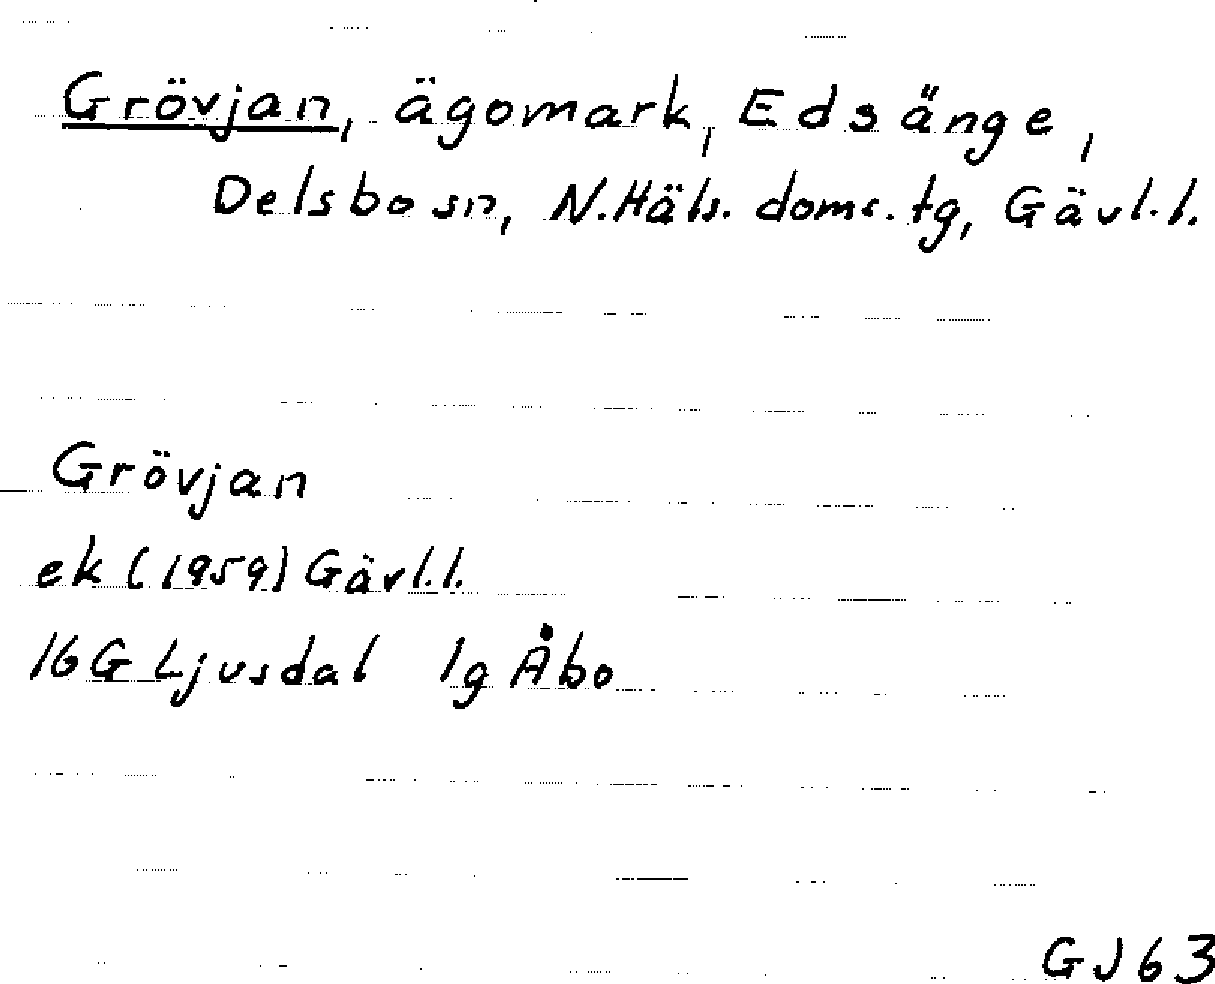 Grövjan, ägomark, Edsänge,
Delsbo sn, N.Häls. doms. tg, Gävl.l.
Grövjan
ek (1959) Gävl.l.
16G Ljusdal 1g Åbo
GJ63